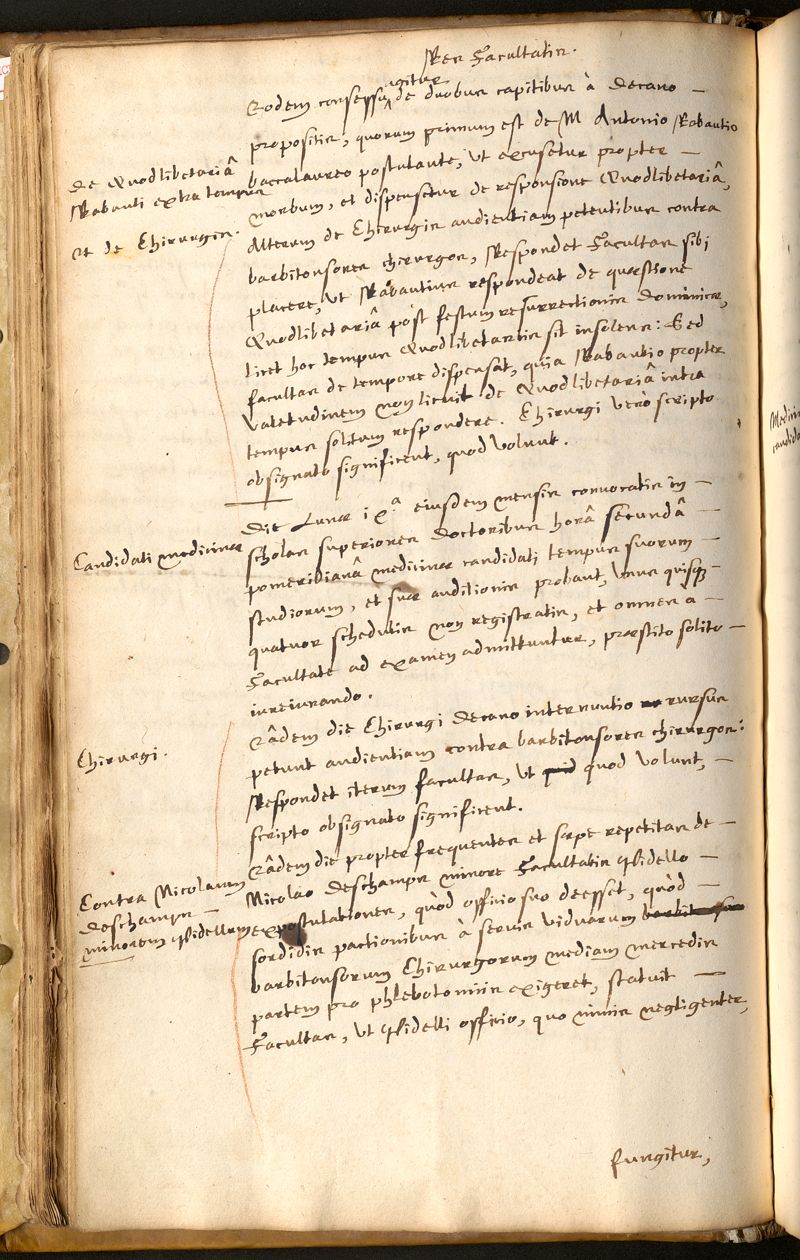 Res Facultatis.
Eodem consessu agitur de duobus capitibus à Decano
propositis, quorum primum est de M Antonio Rabautio
De Quodlibetariâ
Rabauti extra tempus
et de Chirurgis.
baccalaureo postulante, ut excusetur propter
morbum, et dispensetur de responsione Quodlibetariâ,
Alterum de Chirurgis audientiam petentibus contra
barbitonsores chirurgos, Respondet Facultas sibi
placere, ut Rabautius respondeat de quæstione
Quodlibetariâ post festum resurrectionis Dominicæ,
licet hoc tempus Quodlibetariis sit insolens: Sed
facultas de tempore dispensat, quia Rabautio propter
valetudinem non licuit de Quodlibetariâ intra
tempus solitum respondere. Chirurgi verò scripto
obsignato significent, quod volunt.
Candidati medicinæ
Die Lunæ ixa eiusdem mensis convocatis in
scholas superiores Doctoribus horâ secundâ
pomeridianâ medicinæ candidati tempus suorum
studiorum, et suæ auditionis probant, unus quisque
quatuor schedulis non registratis, et omnes a
Facultate ad examen admittuntur, præstito solito
iureiurando.
Chirurgi.
Eâdem die Chirurgi Decano internuntio rursus
petunt audientiam contra barbitonsores chirurgos:
Respondet iterum facultas, ut quod volunt,
scripto obsignato significent.
Contra Nicolaum
Deschamps
minorem Bidellum
Eâdem die propter frequentes et sæpe repetitas de
Nicolao Deschamps minore Facultatis Bidello
expostulationes, quòd officio suo deesset, quòd
sordidis pactionibus à servis viduarum
barbitonsorum Chirurgorum mediam mercedis
partem pro phlebotomiis exigeret, statuit
Facultas, ut Bidelli officio, quo nimis negligenter,
fungitur,
Medicinæ